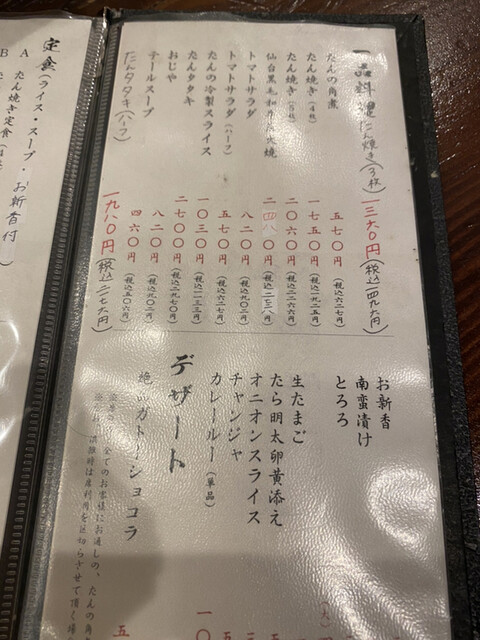 一品料理 たん焼き(3枚) 一三六〇円(税込一四九六円)
たんの角煮 五七〇円(税込六二七円)
たん焼き(4枚) 一七五〇円(税込一九二五円)
たん焼き 二〇六〇円(税込二二六六円)
仙台黒毛和牛たん 二四八〇円
トマトサラダ 八二〇円(税込九〇二円)
トマトサラダ(ハーフ) 五七〇円(税込六二七円)
たんの冷製スライス 一〇三〇円(税込一一三三円)
たんタタキ 二七〇〇円(税込二九七〇円)
おじや 八二〇円(税込九〇二円)
テールスープ 四六〇円(税込五〇六円)
たんタタキ(ハーフ) 一九八〇円(税込二一七六円)
お新香
南蛮漬け
とろろ
生たまご
たら明太卵黄添え
オニオンスライス
チャンジャ
カレールー(単品)
デザート
絶品ガトーショコラ
全てのお客様にお通しの、たんの角
混雑時は席利用を区切らせて頂く場
定食(ライス・スープ・お新香付
A たん焼き定食
B た